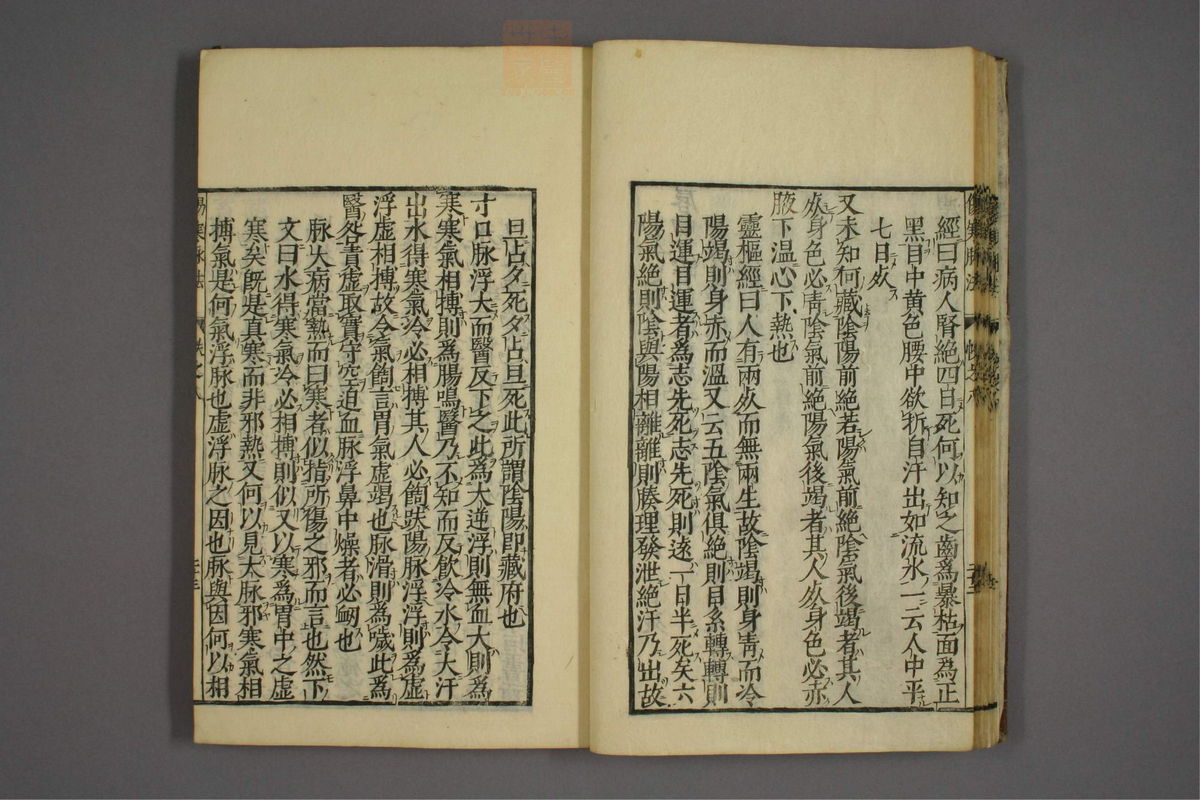 經曰病人腎絕四日死何以知之齒爲暴枯面爲正
黑目中黄色腰中欲折自汗出如流水一云人中平
七日死
又未知何藏陰陽前絕若陽氣前絕陰氣後竭者其人
死身色必靑陰氣前絕陽氣後竭者其人死身色必赤
腋下温心下熱也
靈樞經曰人有兩死而無兩生故陰竭則身靑而冷
陽竭則身赤而溫又云五陰氣俱絕則目系轉轉則
目運目運者爲志先死志先死則遠一日半死矣六
陽氣絕則陰與陽相離離則腠理發泄絕汗乃出故
旦占夕死夕占旦死此所謂陰陽即藏府也
寸口脉浮大而醫反下之此爲大逆浮則無血大則爲
寒寒氣相搏則爲腸鳴醫乃不知而反飲冷水令大汗
出水得寒氣冷必相搏其人必䭇趺陽脉浮浮則爲虛
浮虛相搏故令氣䭇言胃氣虛竭也脉滑則爲噦此爲
醫咎責虛取實守空迫血脉浮鼻中燥者必衂也
脉大病當熱而曰寒者似指所傷之邪而言也然下
文曰水得寒氣冷必相搏則似又以寒爲胃中之虛
寒矣旣是真寒而非邪熱又何以見大脉邪寒氣相
搏氣是何氣浮脉也虛浮脉之因也脉與因何以相
傷寒脉法
卷之八